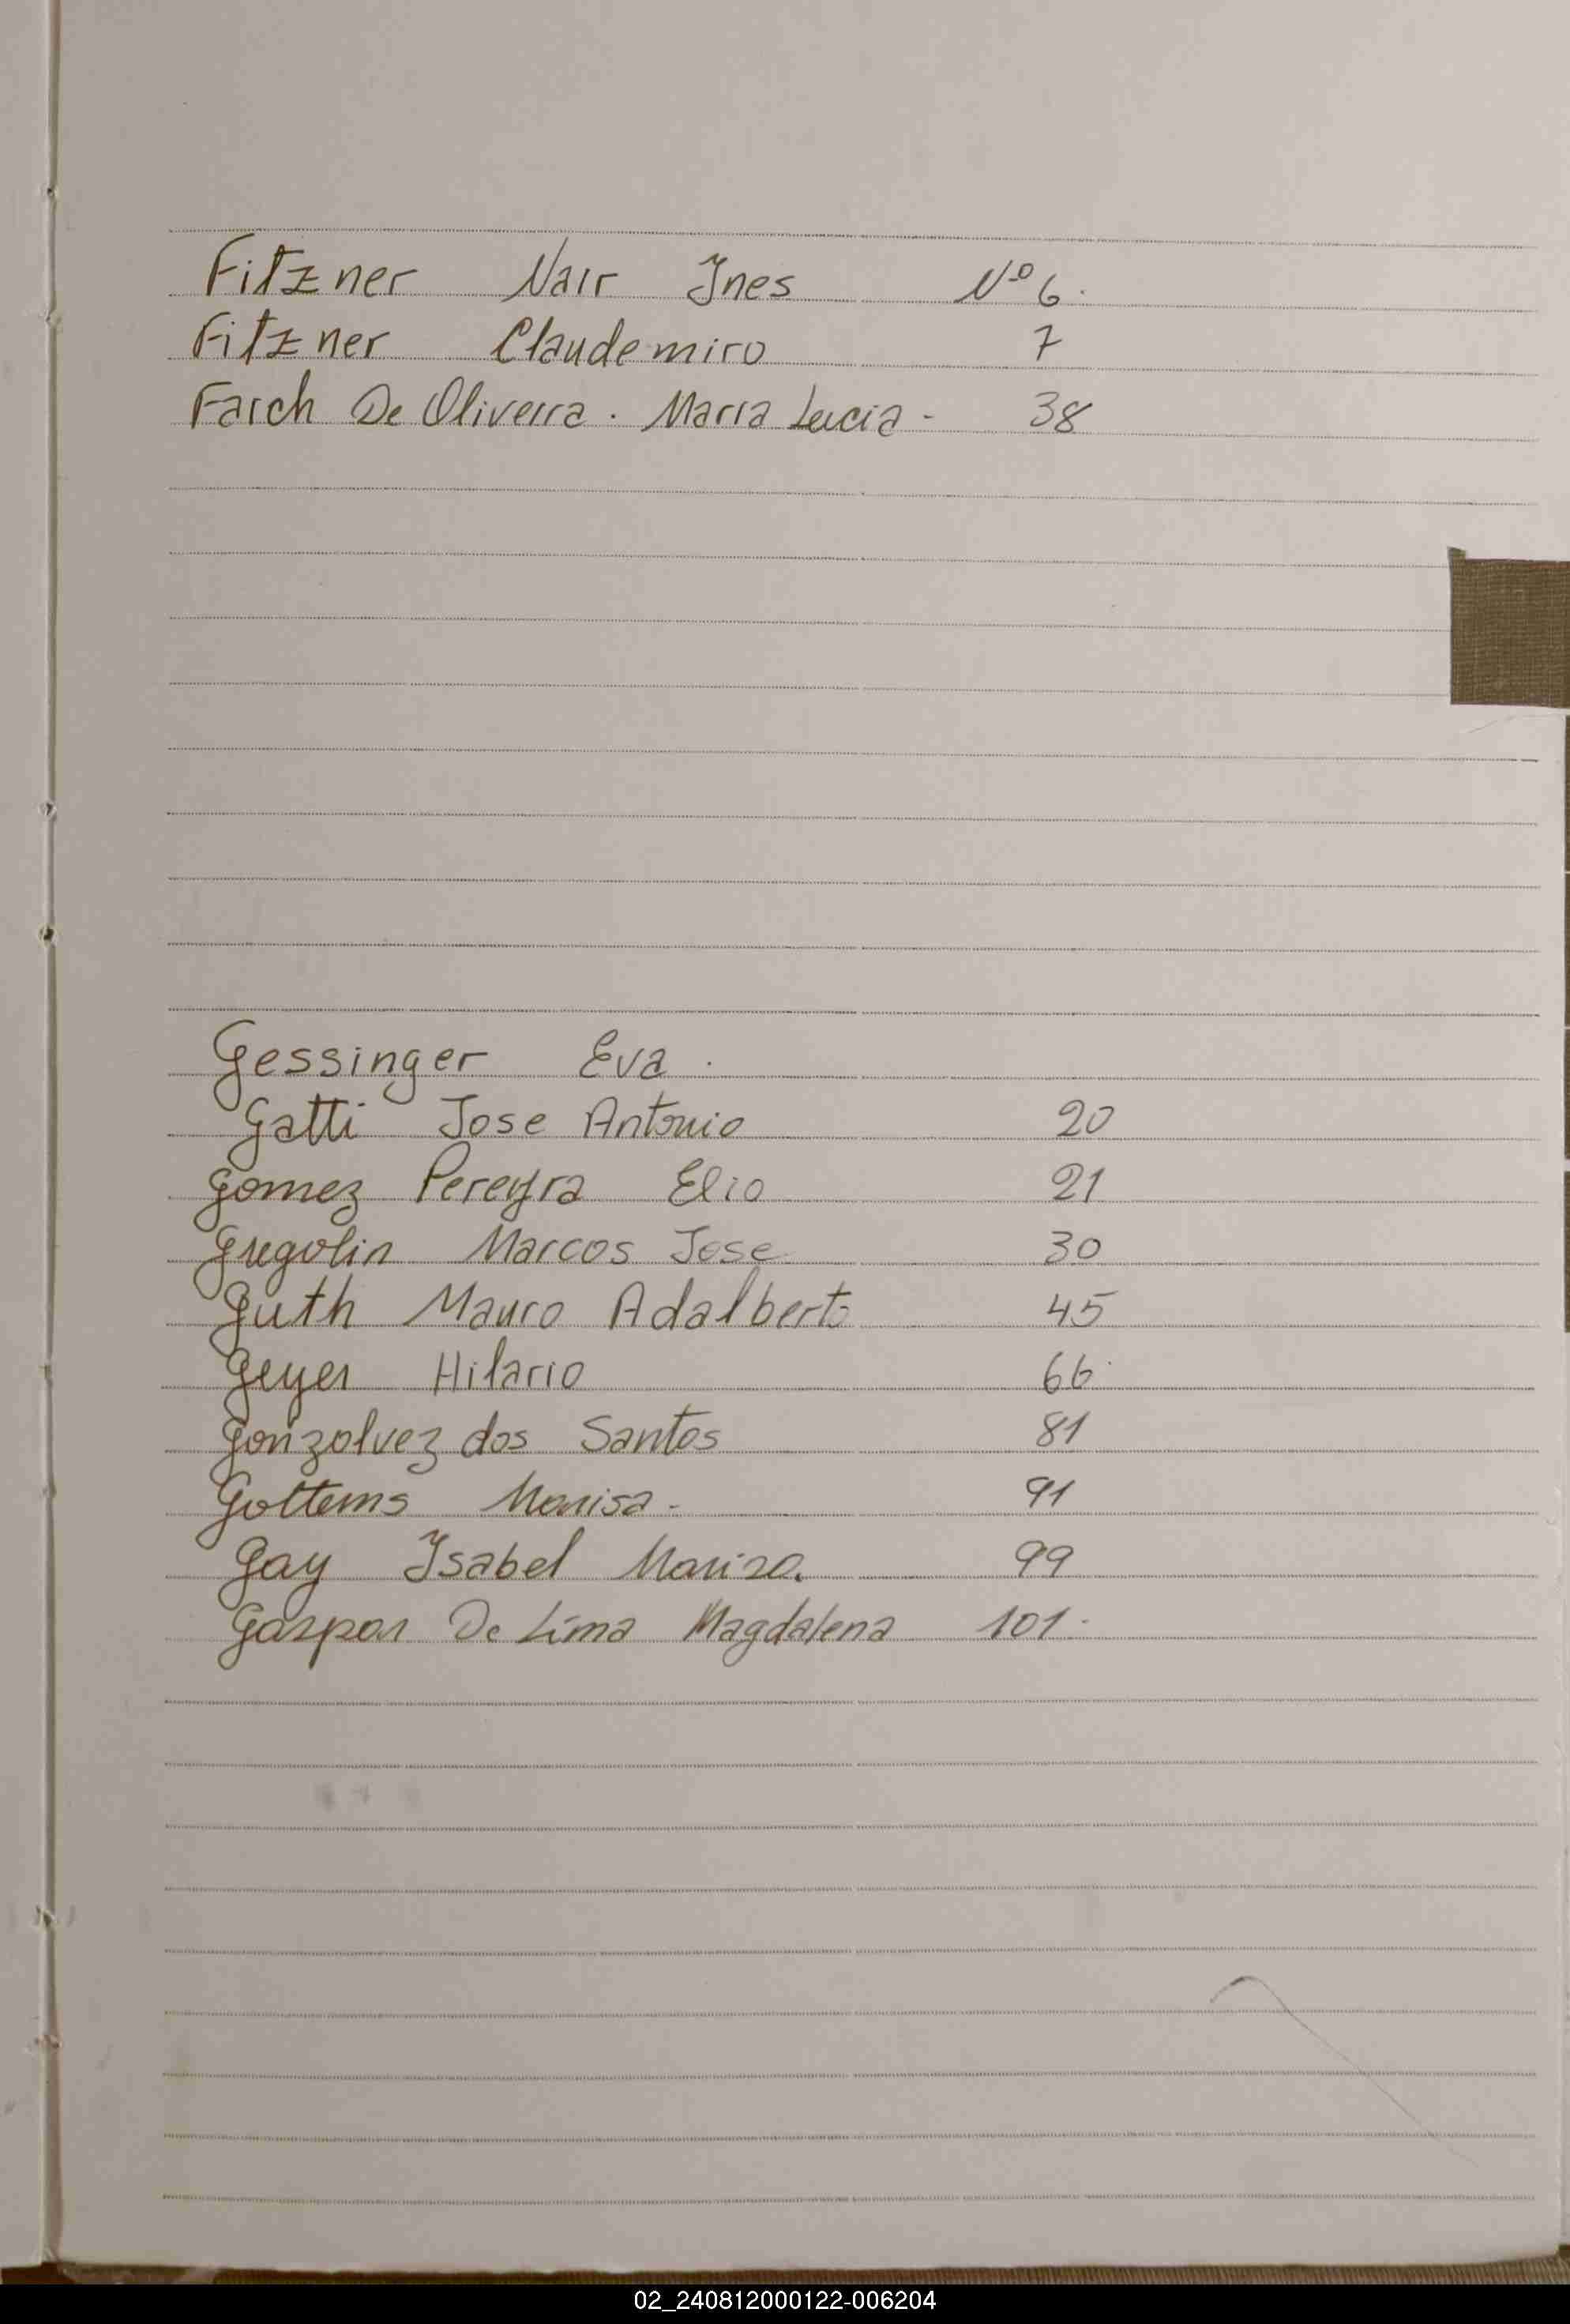 Fitzner Nair Ines Nº 6.
Fitzner Claudemiro 7
Farch De Oliveira. Maria Lucia - 38
Gessinger Eva.
Gatti Jose Antonio 20
Gomez Pereyra Elio 21
Gregolin Marcos Jose 30
Guth Mauro Adalberto 45
Geyer Hilario 66.
Gonzolvez dos Santos 81
Goltems Marisa - 91
Gay Isabel Mariza. 99
Gaspar De Lima Magdalena 101.
02_240812000122-006204